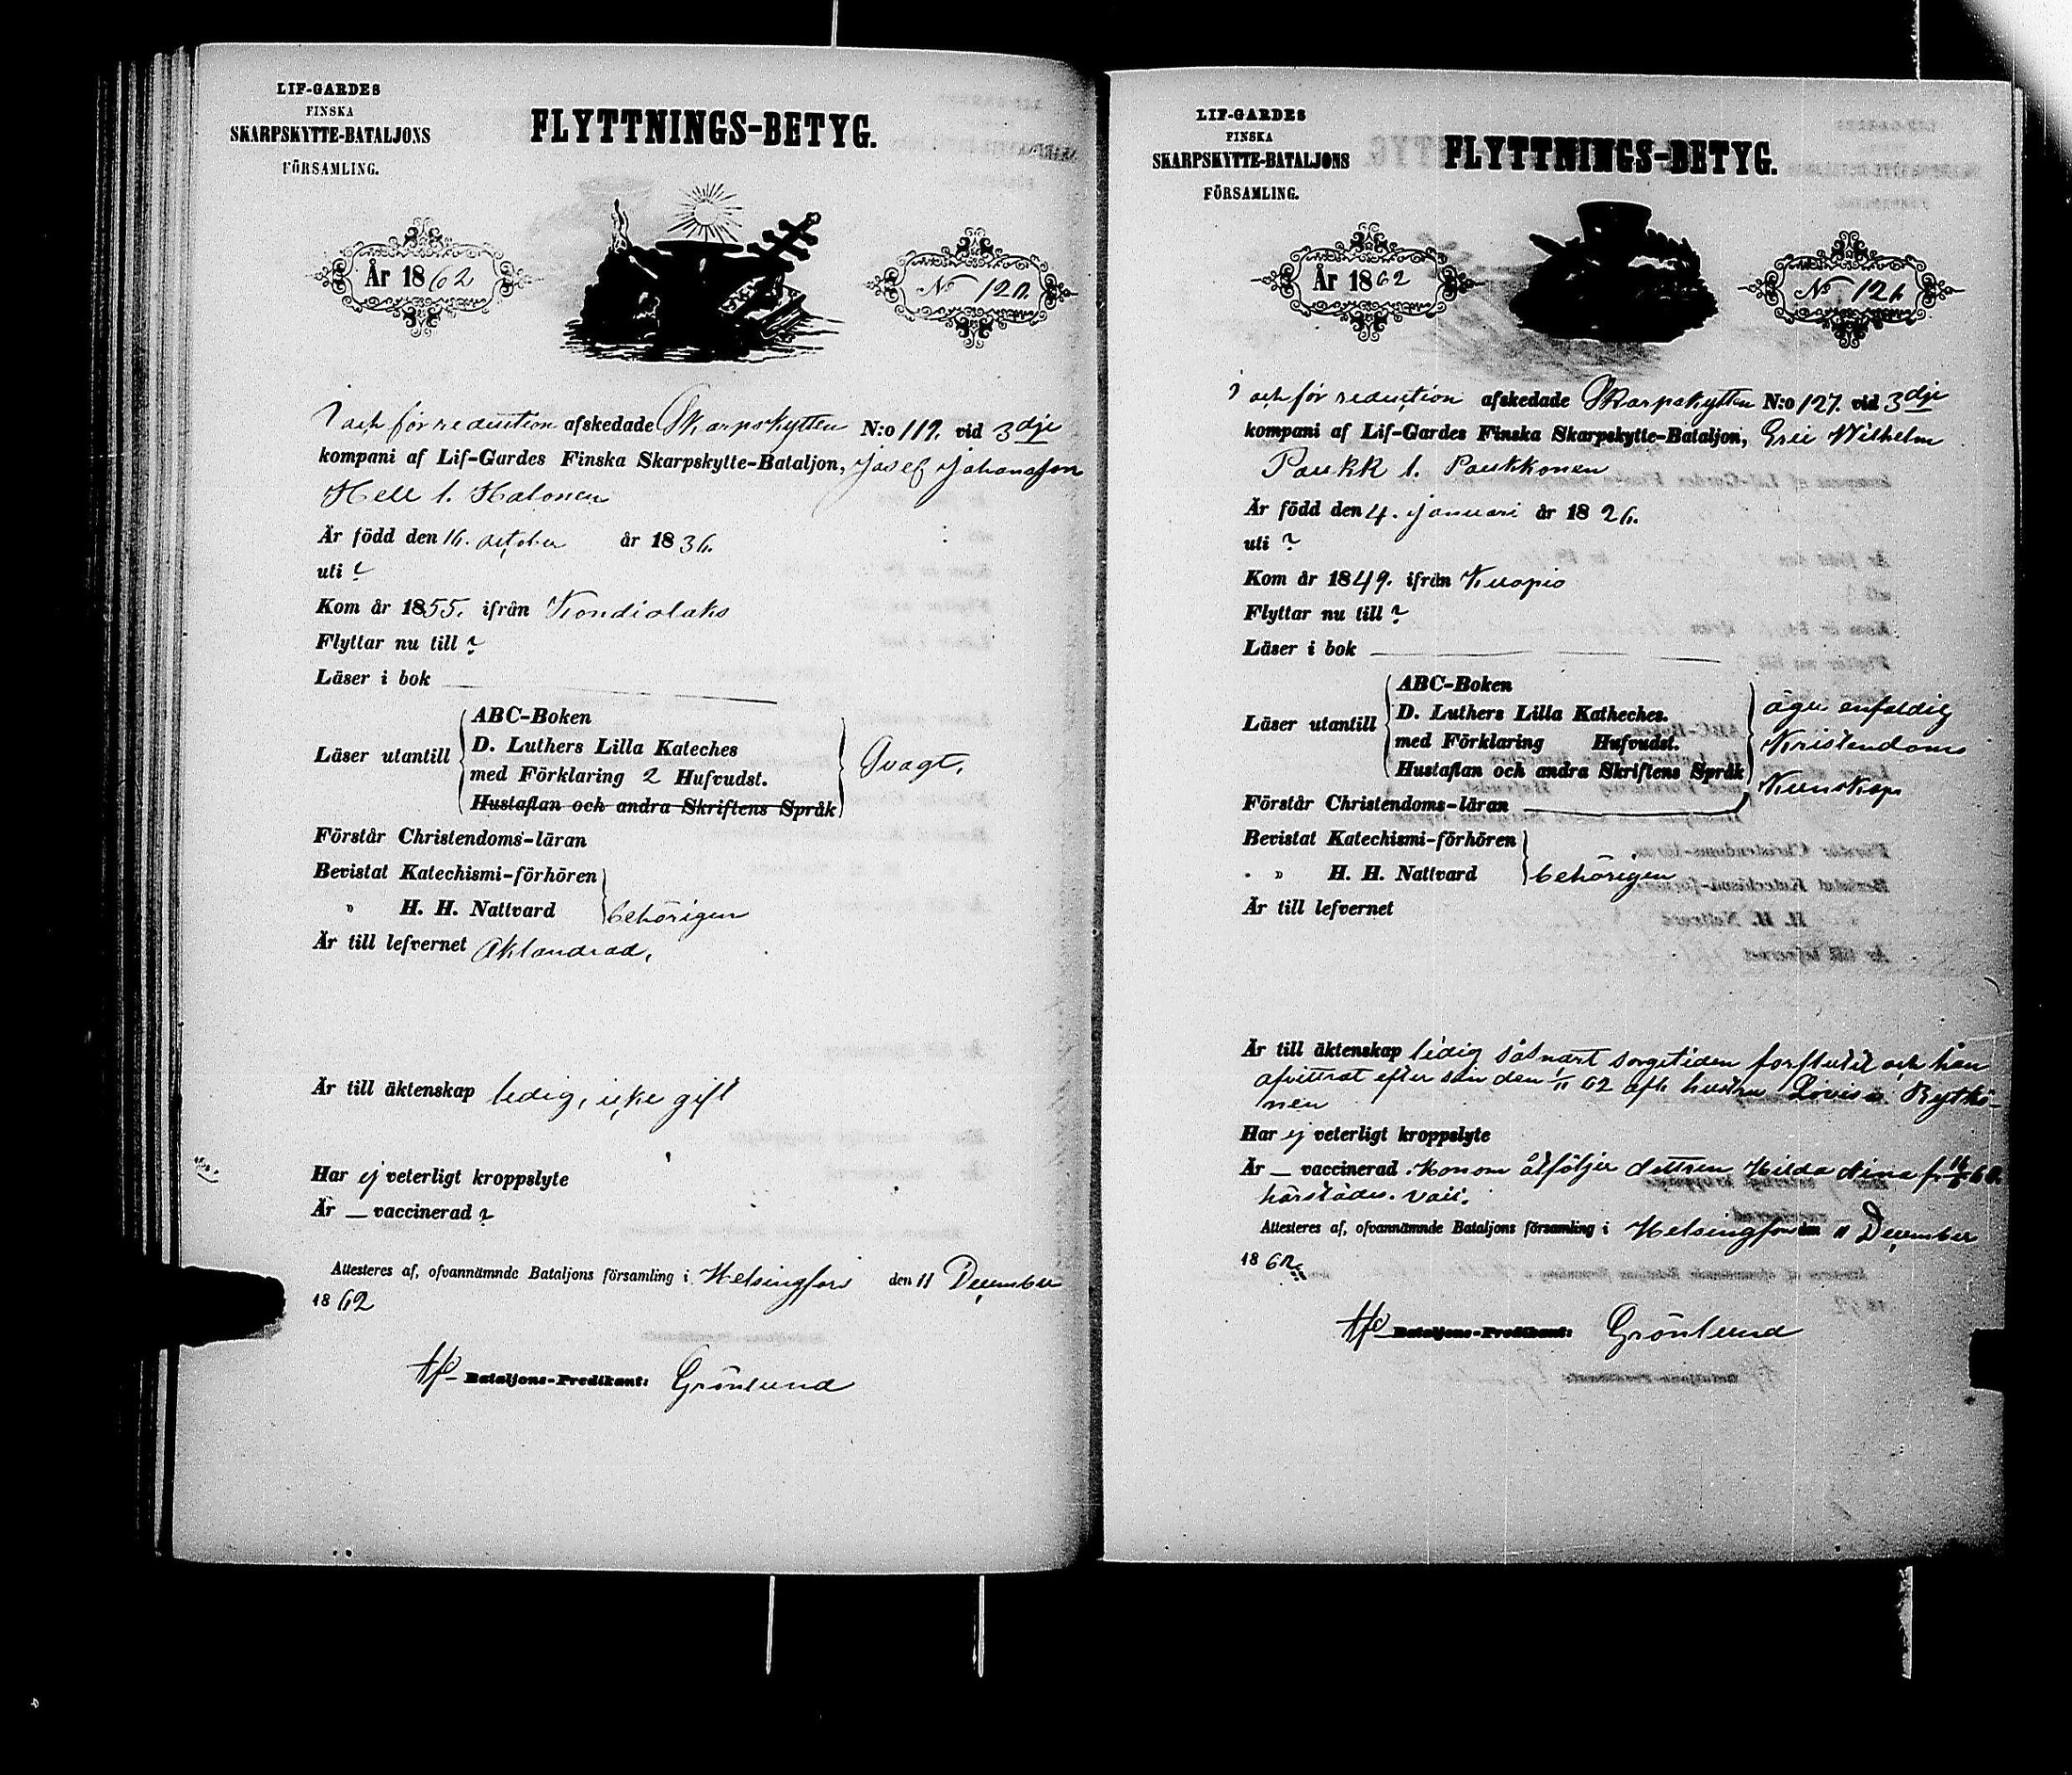 LIF-GARDES
FINSKA
SKARPSKYTTE-BATALJONS
FÖRSAMLING.
FLYTTNINGS-BETYG.
År 1862
No 120.
I och för reduction afskedade Skarpskytten N:o 119. vid 3dje
kompani af Lif-Gardes Finska Skarpskytte-Bataljon, Josef Johansson
Hell l. Halonen
Är född den 16. october år 1836.
uti ?
Kom år 1855. ifrån Kondiolaks
Flyttar nu till ?
Läser i bok
Läser utantill
ABC-Boken
D. Luthers Lilla Kateches
med Förklaring 2 Hufvudst.
Hustaflan och andra Skriftens Språk
Svagt.
Förstår Christendoms-läran
Bevistat Katechismi-förhören
" H. H. Nattvard behörigen
Är till lefvernet oklandrad.
Är till äktenskap ledig, icke gift
Har ej veterligt kroppslyte
Är — vaccinerad ?
Attesteres af, ofvannämnde Bataljons församling i Helsingfors den 11 December
1862
Bataljons-Predikant: Grönlund
LIF-GARDES
FINSKA
SKARPSKYTTE-BATALJONS
FÖRSAMLING.
FLYTTNINGS-BETYG.
År 1862
No 121.
I och för reduction afskedade Skarpskytten N:o 127. vid 3dje
kompani af Lif-Gardes Finska Skarpskytte-Bataljon, Eric Wilhelm
Paukk l. Paukkonen
Är född den 4. januari år 1826.
uti ?
Kom år 1849. ifrån Kuopio
Flyttar nu till ?
Läser i bok
Läser utantill
ABC-Boken
D. Luthers Lilla Katheches.
med Förklaring Hufvudst.
Hustaflan och andra Skriftens Språk
äger enfaldig
Kristendoms
Kunskap
Förstår Christendoms-läran
Bevistat Katechismi-förhören
" H. H. Nattvard behörigen
Är till lefvernet
Är till äktenskap ledig såsnart sorgetiden förflutit och han
afvittrat efter sin den 1/11 62 afl. hustru Lovisa Rytkö-
nen
Har ej veterligt kroppslyte
Är — vaccinerad. Honom åtföljer dottren Hilda
härstädes. vacc.
Attesteres af, ofvannämnde Bataljons församling i Helsingfors den 11 December
1862
Bataljons-Predikant: Grönlund